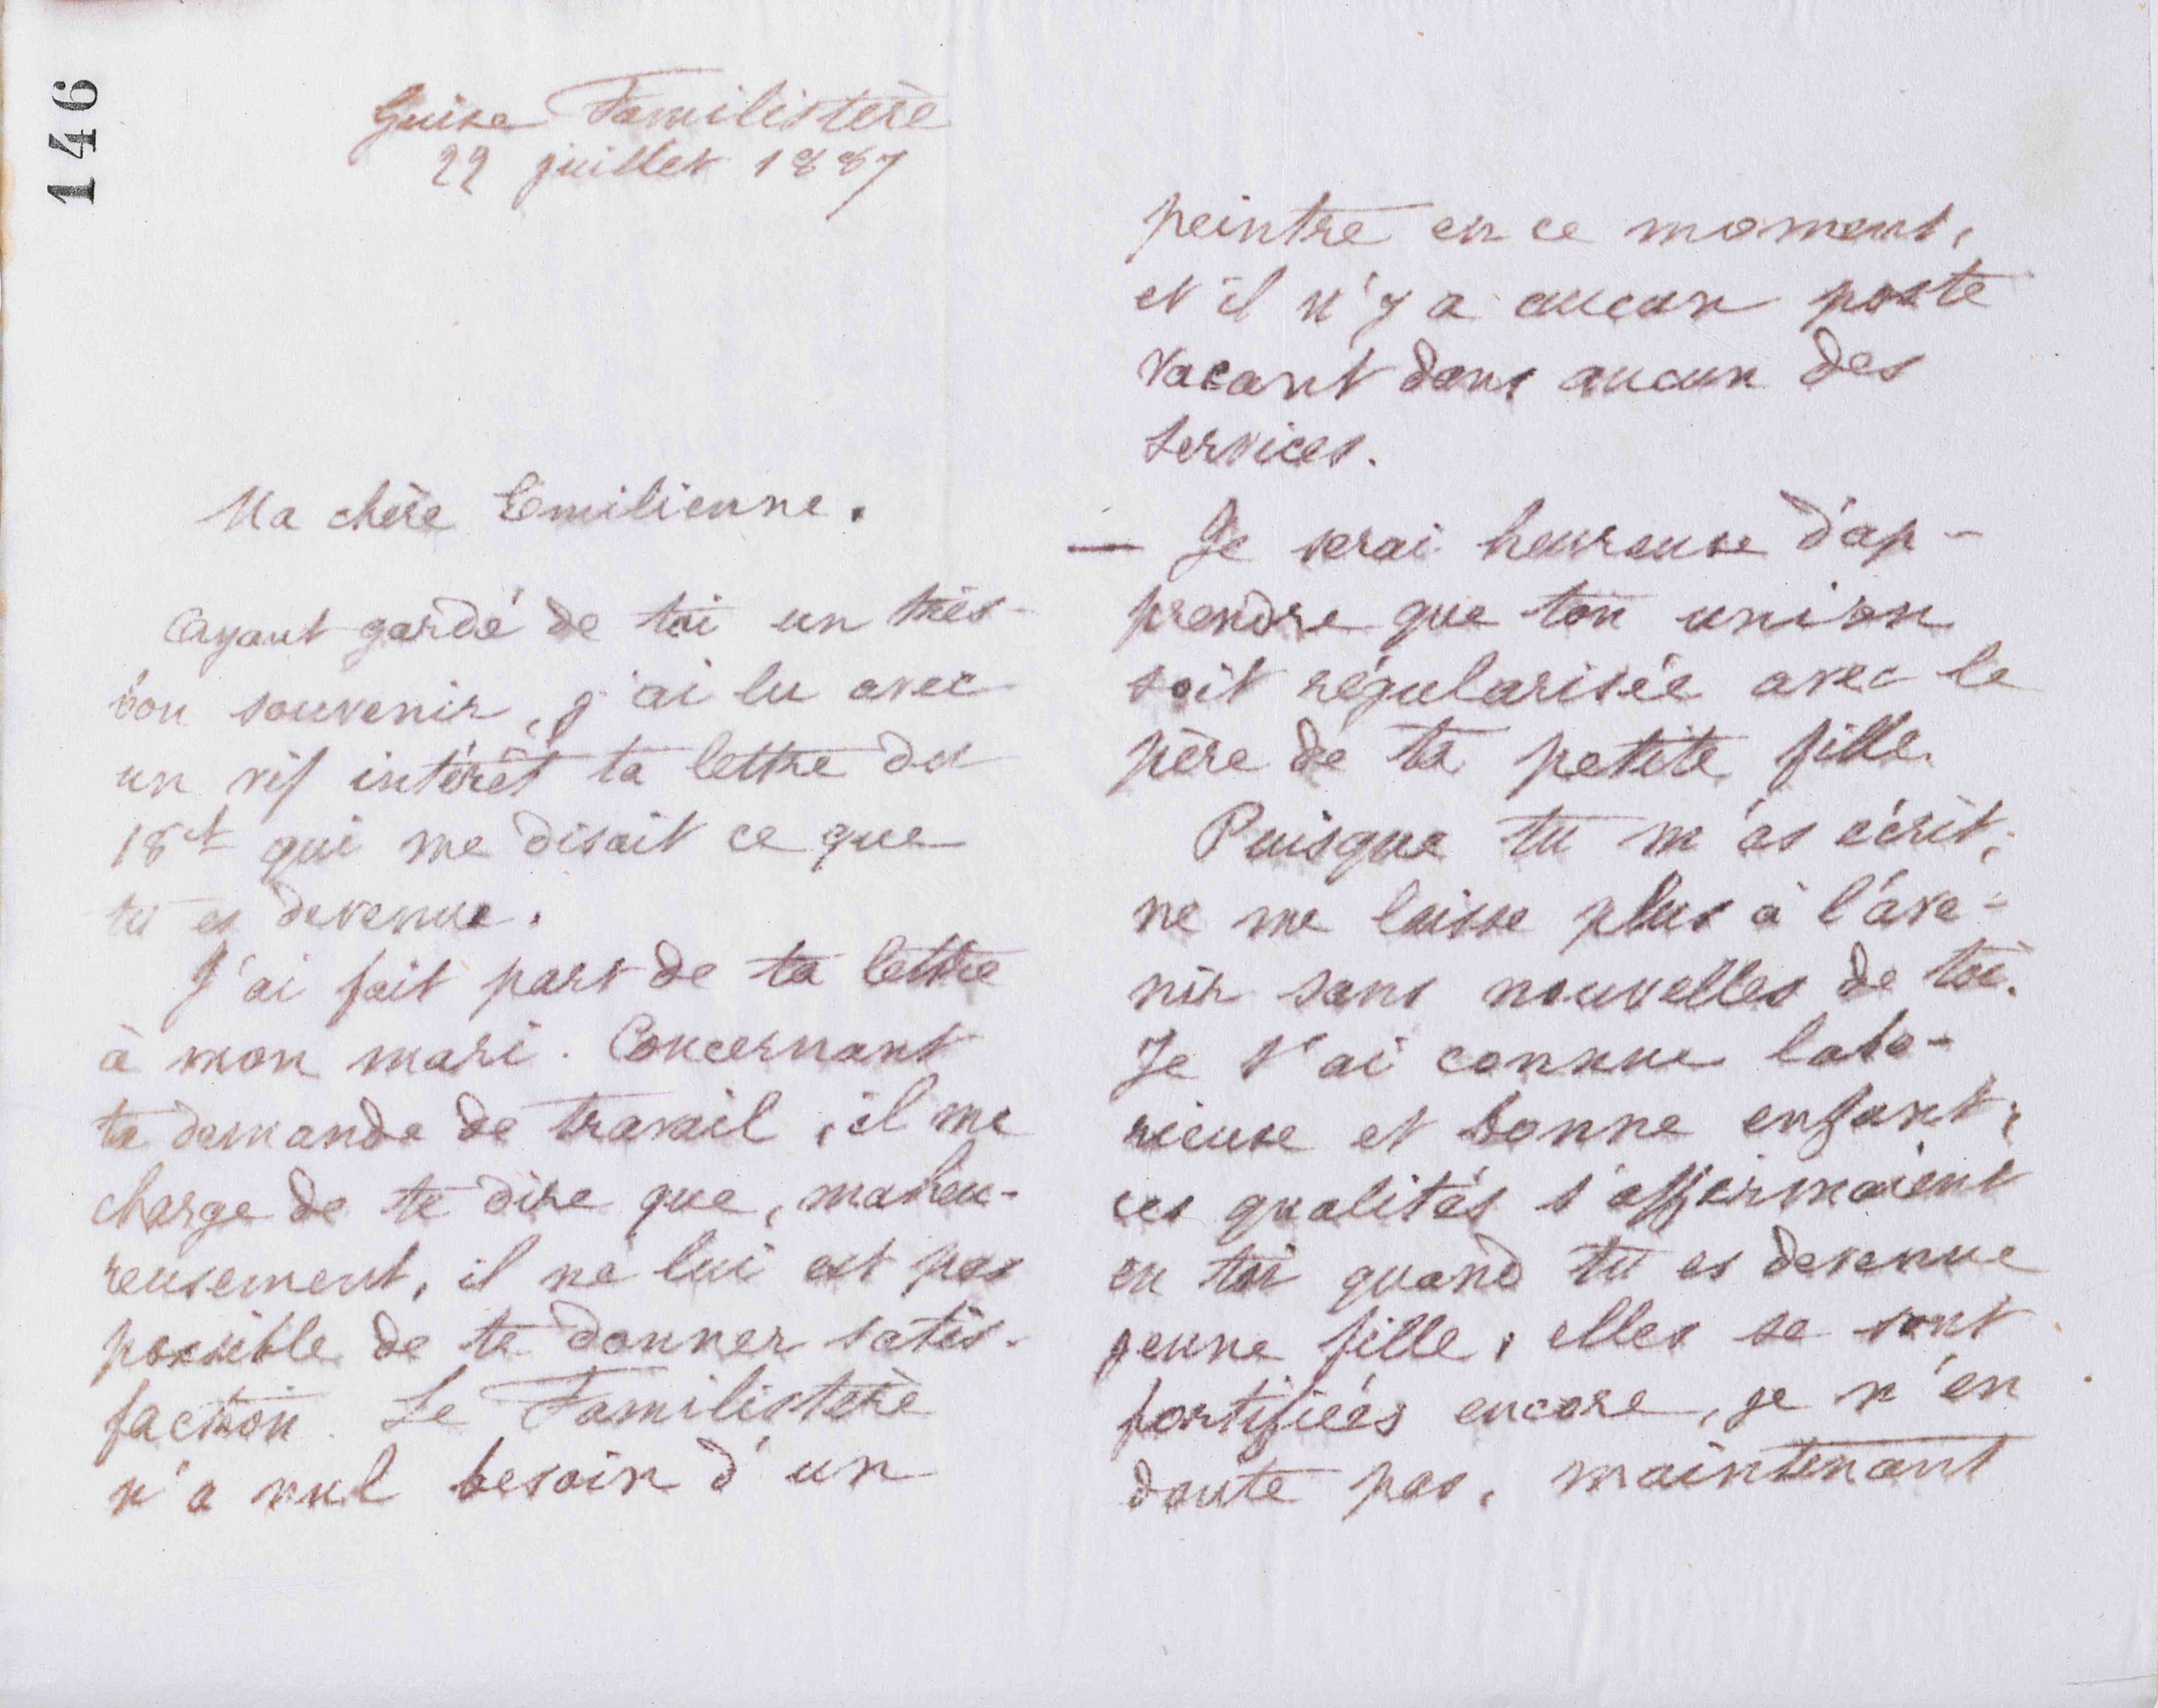 146
Guise Familistère
22 juillet 1887
Ma chère Emilienne.
Ayant gardé de toi un très
bon souvenir, j'ai lu avec
un vif intérêt ta lettre du
18 ct qui me disait ce que
tu es devenue.
J'ai fait part de ta lettre
à mon mari. Concernant
ta demande de travail, il me
charge de te dire que, malheu-
reusement, il ne lui est pas
possible de te donner satis-
faction. Le Familistère
n'a nul besoin d'un
peintre en ce moment,
et il n'y a aucun poste
vacant dans aucun des
services.
— Je serai heureuse d'ap-
prendre que ton union
soit régularisée avec le
père de ta petite fille.
Puisque tu m'as écrit,
ne me laisse plus à l'ave-
nir sans nouvelles de toi.
Je t'ai connue labo-
rieuse et bonne enfant;
ces qualités s'affermaient
en toi quand tu es devenue
jeune fille; elles se sont
fortifiées encore, je n'en
doute pas, maintenant